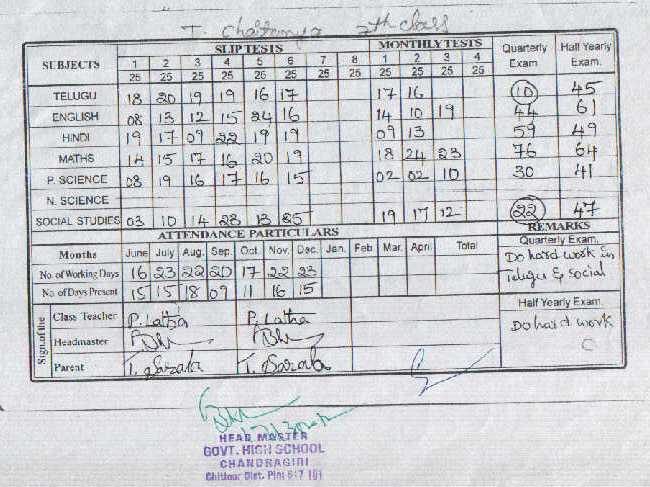 T. Chaitanya 7th class
SUBJECTS SLIP TESTS MONTHLY TESTS Quarterly Exam Half Yearly Exam.
1 2 3 4 5 6 7 8 1 2 3 4
25 25 25 25 25 25 25 25 25 25 25 25
TELUGU 18 20 19 19 16 17 17 16 10 45
ENGLISH 08 13 12 15 24 16 14 10 19 44 61
HINDI 19 17 09 22 19 19 09 13 59 49
MATHS 14 15 17 16 20 19 18 24 23 76 64
P. SCIENCE 08 19 16 17 16 15 02 02 10 30 41
N. SCIENCE
SOCIAL STUDIES 03 10 14 23 13 25 19 17 12 22 47
ATTENDANCE PARTICULARS REMARKS
Months June July Aug. Sep. Oct. Nov. Dec. Jan. Feb Mar. April Total Quarterly Exam.
No. of Working Days 16 23 22 20 17 22 23 Do hard work in
No. of Days Present 15 15 18 09 11 16 15 Telugu & Social
Sign.of the Class Teacher P. Latha P. Latha Half Yearly Exam.
Headmaster Do hard work
Parent T. Sarala T. Sarala
HEAD MASTER
GOVT. HIGH SCHOOL
CHANDRAGIRI
Chittoor Dist. Pin: 517 101